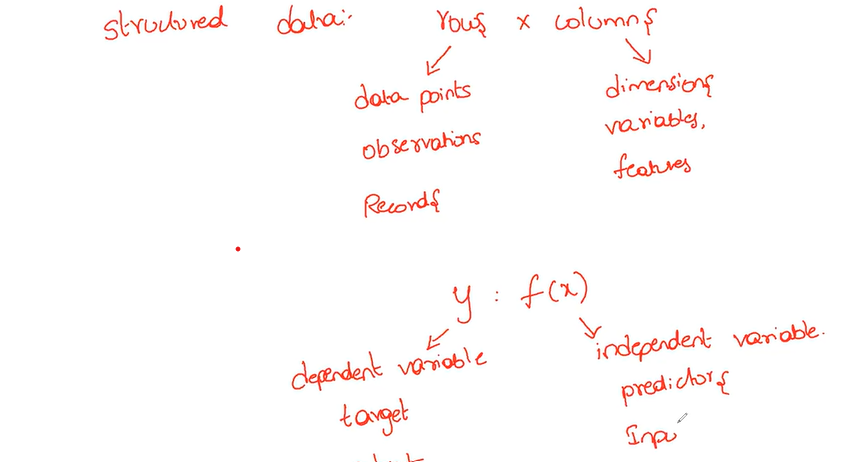 structured data:- rows x columns
data points
observations
Records
dimensions
variables,
features
y : f(x)
dependent variable
target
independent variable.
predictors
Inpu